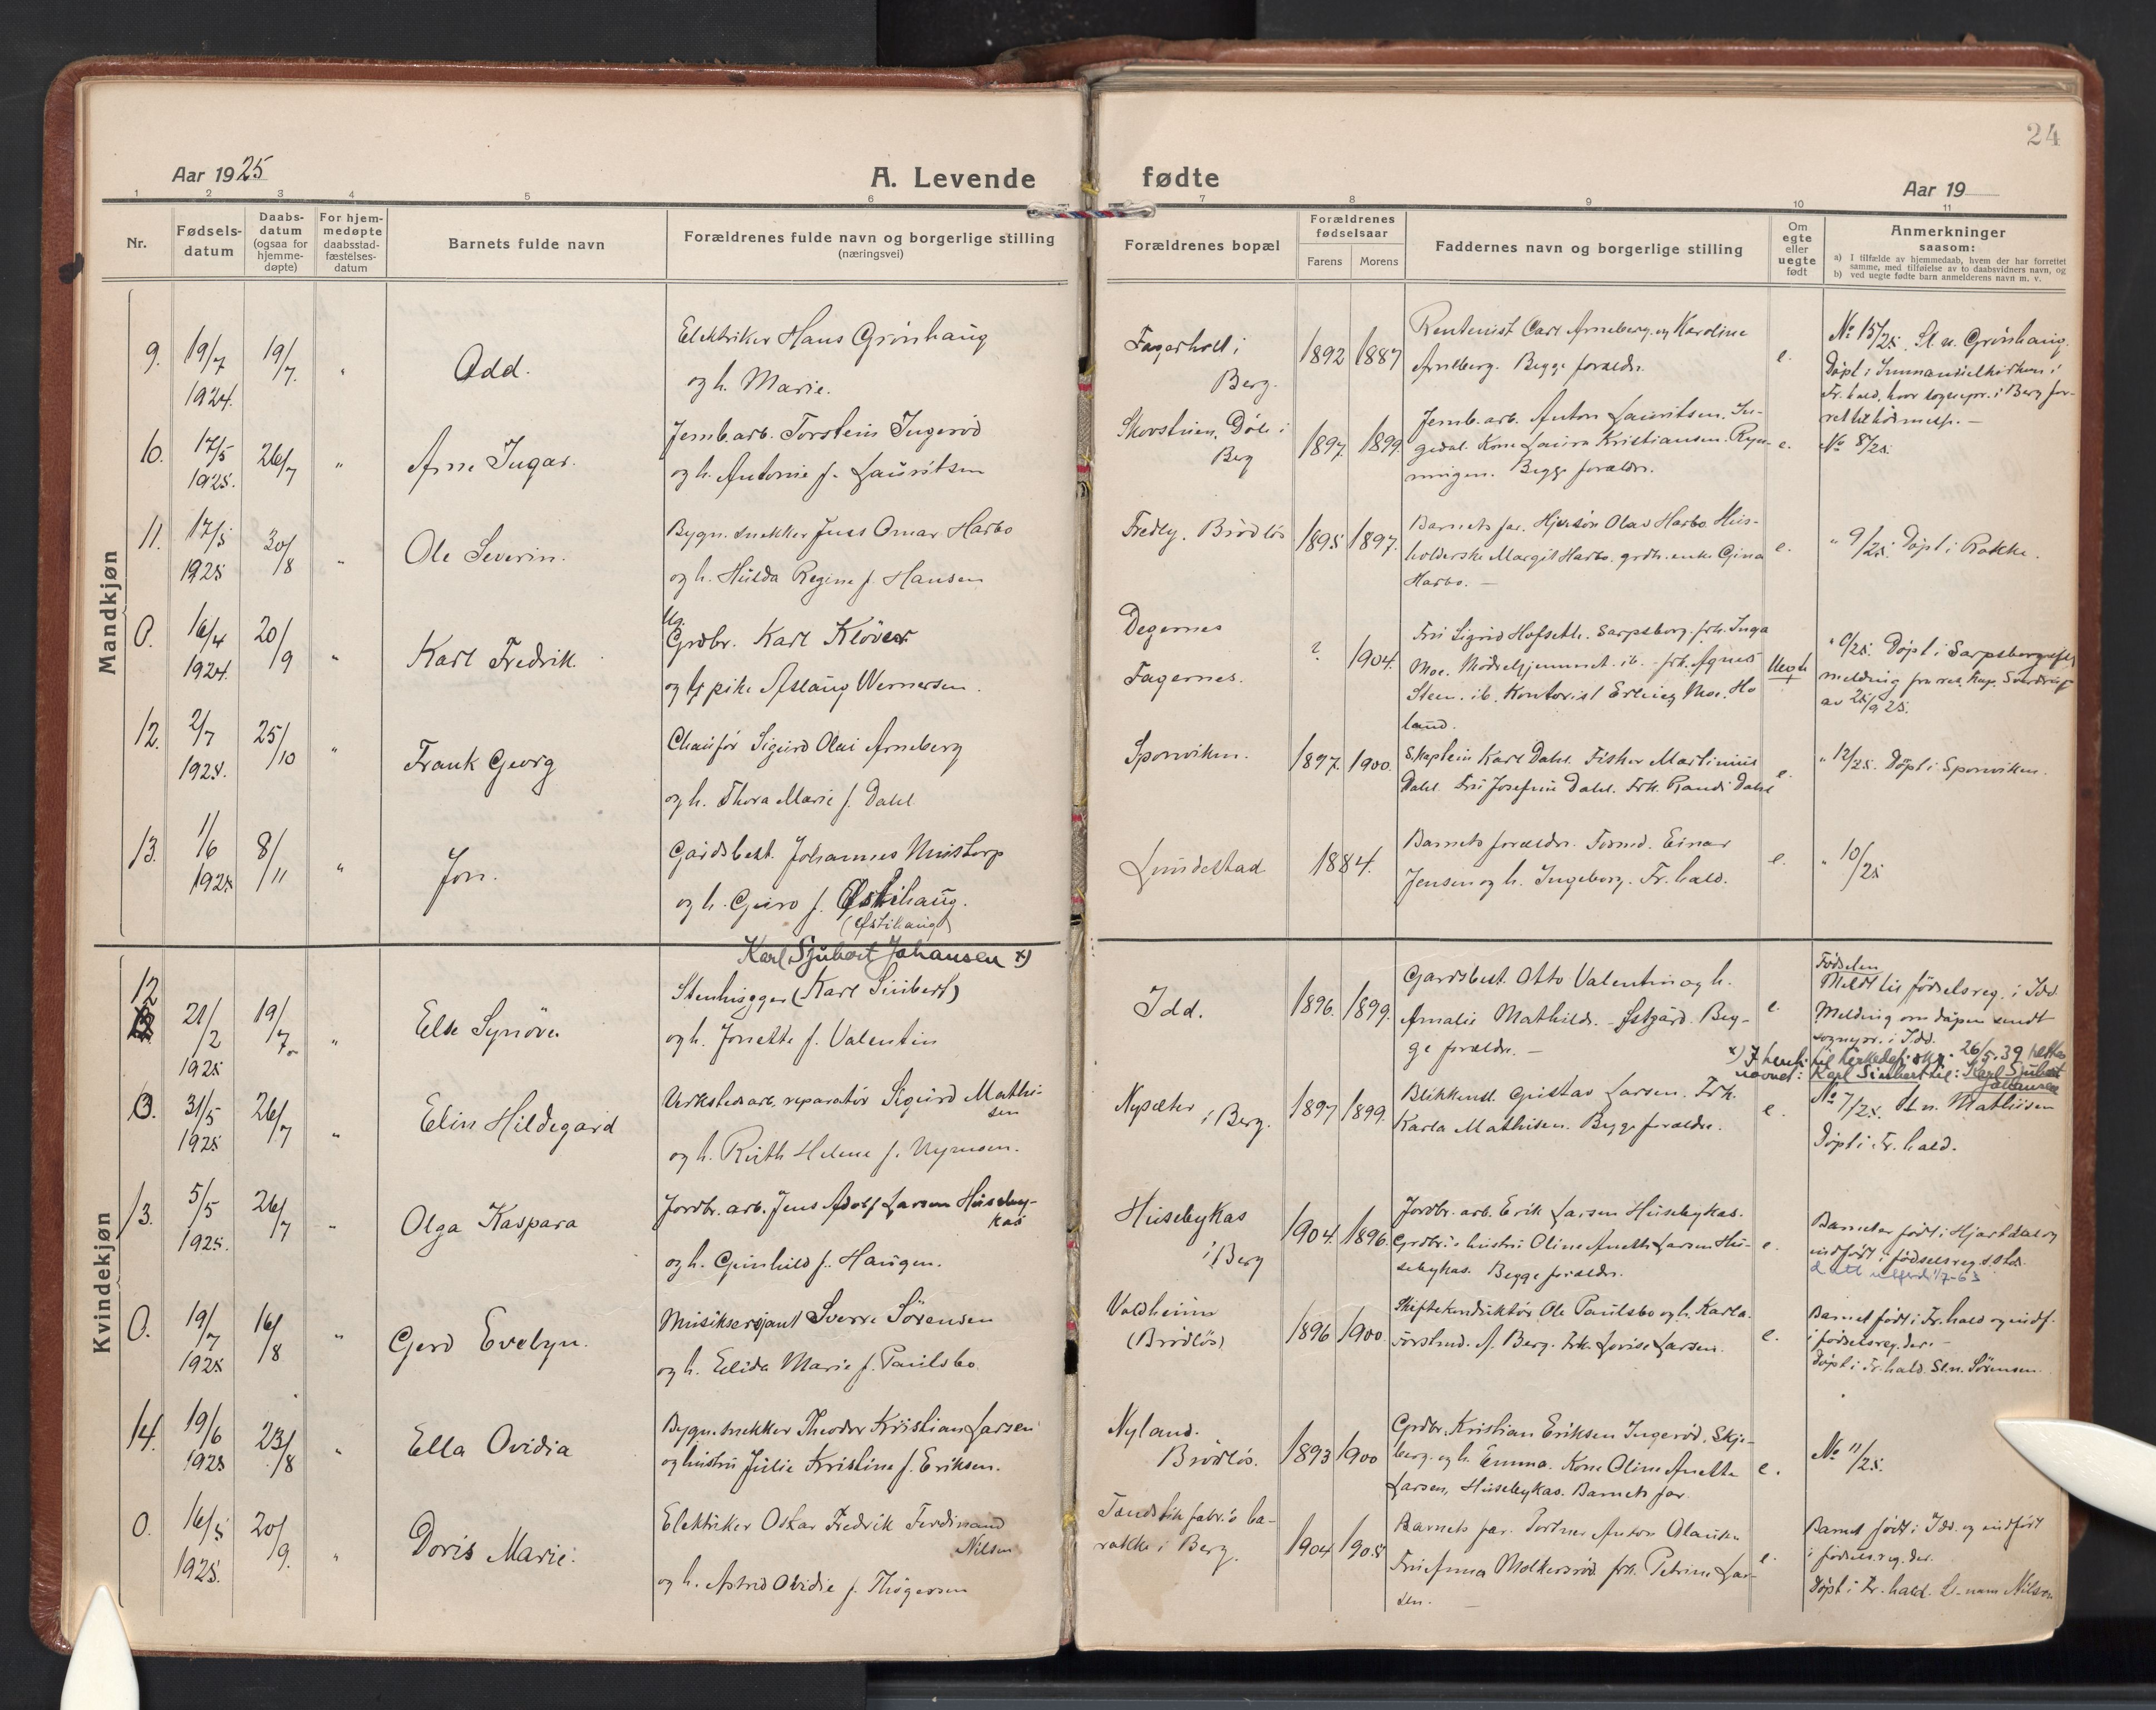 24
Aar 1925
A. Levende
fødte
Aar 19
1 2 3 4 5 6 7 8 9 10 11
Nr.
Fødsels-
datum
Daabs-
datum
(ogsaa for
hjemme-
døpte)
For hjem-
medøpte
daabsstad-
fæstelses-
datum
Barnets fulde navn
Forældrenes fulde navn og borgerlige stilling
(næringsvei)
Forældrenes bopæl
Forældrenes
fødselsaar
Farens
Morens
Faddernes navn og borgerlige stilling
Om
egte
eller
uegte
født
Anmerkninger
saasom:
a) I tilfælde av hjemmedaab, hvem der har forrettet
samme, med tilføielse av to daabsvidners navn, og
b) ved uegte fødte barn anmelderens navn m. v.
Mandkjøn
9. 19/7 1924. 19/7. "
Odd.
Elektriker Hans Grönhaug
og h. Marie.
Fagerholt i
Berg.
1892 1887
Rentenist Carl Arneberg og Karoline
Arneberg. Begge forældr.
e.
No 15/25. Sl. n. Grönhaug.
Döpt i Immanuelkirken i
Fr.hald, hvor sognepr. i Berg for-
10. 17/5 1925. 26/7 "
Arne Ingar.
Jernb.arb. Torstein Ingeröd
og h. Antonie f. Lauritsen
Berg
1897. 1899.
Jernb. arb. Anton Lauritsen. In-
gedal. Kone Laura Kristiansen. Ryn-
ningen. Begge forældr.
e.
No 8/25.
11. 17/5 1925 30/8 "
Ole Severin.
Bygn. snekker Jens Omar Harbo
og h. Hulda Regine f. Hansen
Fredly. Brödlös
1895 1897.
Barnets far. Olav Harbo. Hus-
holderske Margit Harbo. grdbr. enke Gina
Harbo. —
e.
" 9/25. Döpt i Rokke.
0. 16/4 1924. 20/9 "
Karl Fredrik.
Ug.
Grdbr. Karl Klöver
og pike Aslaug Wernersen.
Degernes
Fagernes.
? 1904.
Fru Sigrid Hofseth. Sarpsborg. frk. Inga
Moe. Mödrehjemmet. ib. frk. Agnes
Steen. ib. Kontorist Erling Moe. Ho
land.
Uegte
" 0/25. Döpt i Sarpsborg efter
melding fra res. kap. Sverdrup
av 25/9 25.
12. 2/7 25/10 "
Frank Georg
Chauför Sigurd Olai Arneberg
og h. Thora Marie f. Dahl
Sponviken.
1897. 1900.
Skaptein Karl Dahl. Fisker Martinius
Dahl. Fru Josefine Dahl. Frk. Randi Dahl
e.
" 12/25. Döpt i Sponviken.
13. 1/6 1925 8/11 "
Jon.
Gardsbest. Johannes Mustorp
og h. Guro f. Östihaug.
(Östihaug)
Lundestad
1884.
Barnets forældr. Einar
Jensen og h. Ingeborg. Fr.hald.
e.
" 10/25
Kvindekjøn
Karl Sjubert Johansen x)
12 21/2 1925 19/7. "
Else Synöve
Stenhugger (Karl Sinbert)
og h. Jonette f. Valentin
Idd.
1896. 1899.
Gardsbest. Otto Valentin og h.
Amalie Mathilde. Beg-
ge forældr. —
e.
Födselen
Meldt til födselsreg. i Idd.
Melding om dåpen sendt
sognepr. i Idd.
26/5.39 rettes
navnet: Karl Sinbert til: Karl Sjubert
Johansen
0. 31/5 1925 26/7 "
Elin Hildegard
Verkstedsarb, reparatör Sigurd Mathi-
sen
og h. Ruth Helene f. Nymoen.
Nysæter
i Berg.
1897 1899.
Blikkensl. Gustav Larsen. Frk.
Karla Mathisen. Begge forældre.
e.
No 7/25. Sl. n. Mathisen
Döpt i Fr.hald.
13. 5/5 1925. 26/7 "
Olga Kaspara
Jordbr. arb. Jens Adolf Larsen Huseby-
kas
og h. Gunhild f. Haugen.
Husebykas
i Berg
1904. 1896.
Jordbr. arb. Erik Larsen Husebykas.
Grdbr.s hustru Oline Anette Larsen Hu-
sebykas. Begge forældr.
e.
Barnet er född i Hjartdal og
indfört i födselsreg. s. std.
0. 19/7 1925 16/8 "
Gerd Evelyn.
Musiksersjant Sverre Sörensen
og h. Elida Marie f. Paulsbo.
Valdheim
(Brödlös)
1896 1900.
Skiftekonduktör Ole Paulsbo og h. Karla.
A. Berg. Frk. Lovise Larsen.
e.
Barnet född i Fr.hald og indf.
i födselsreg. der. —
Döpt i Fr.hald. Sl.n. Sörensen.
14. 19/6 1925 23/8 "
Ella Ovidia
Bygn. snekker Theodor Kristian Larsen
og hustru Julie Kristine f. Eriksen.
Nyland.
Brödlös.
1893 1900
Grdbr. Kristian Eriksen Ingeröd. Skje-
berg. og h. Emma. Kone Oline Anette
Larsen, Husebykas. Barnets far.
e.
No 11/25.
0. 16/5 1925. 20/9. "
Doris Marie.
Elektriker Oskar Fredrik Ferdinand
Nilsen
og h. Astrid Ovidie f. Thögersen
Tændstikfabr.s ba-
rakke i Berg.
1904 1905
Barnets far. Portner Anton Olausen
Fru Anna Molkersröd frk. Petrine Lar-
sen. —
e.
Barnet född i Idd. og indfört
i födsels.reg. der.
Döpt i Fr.hald. Sl-navn Nilsen